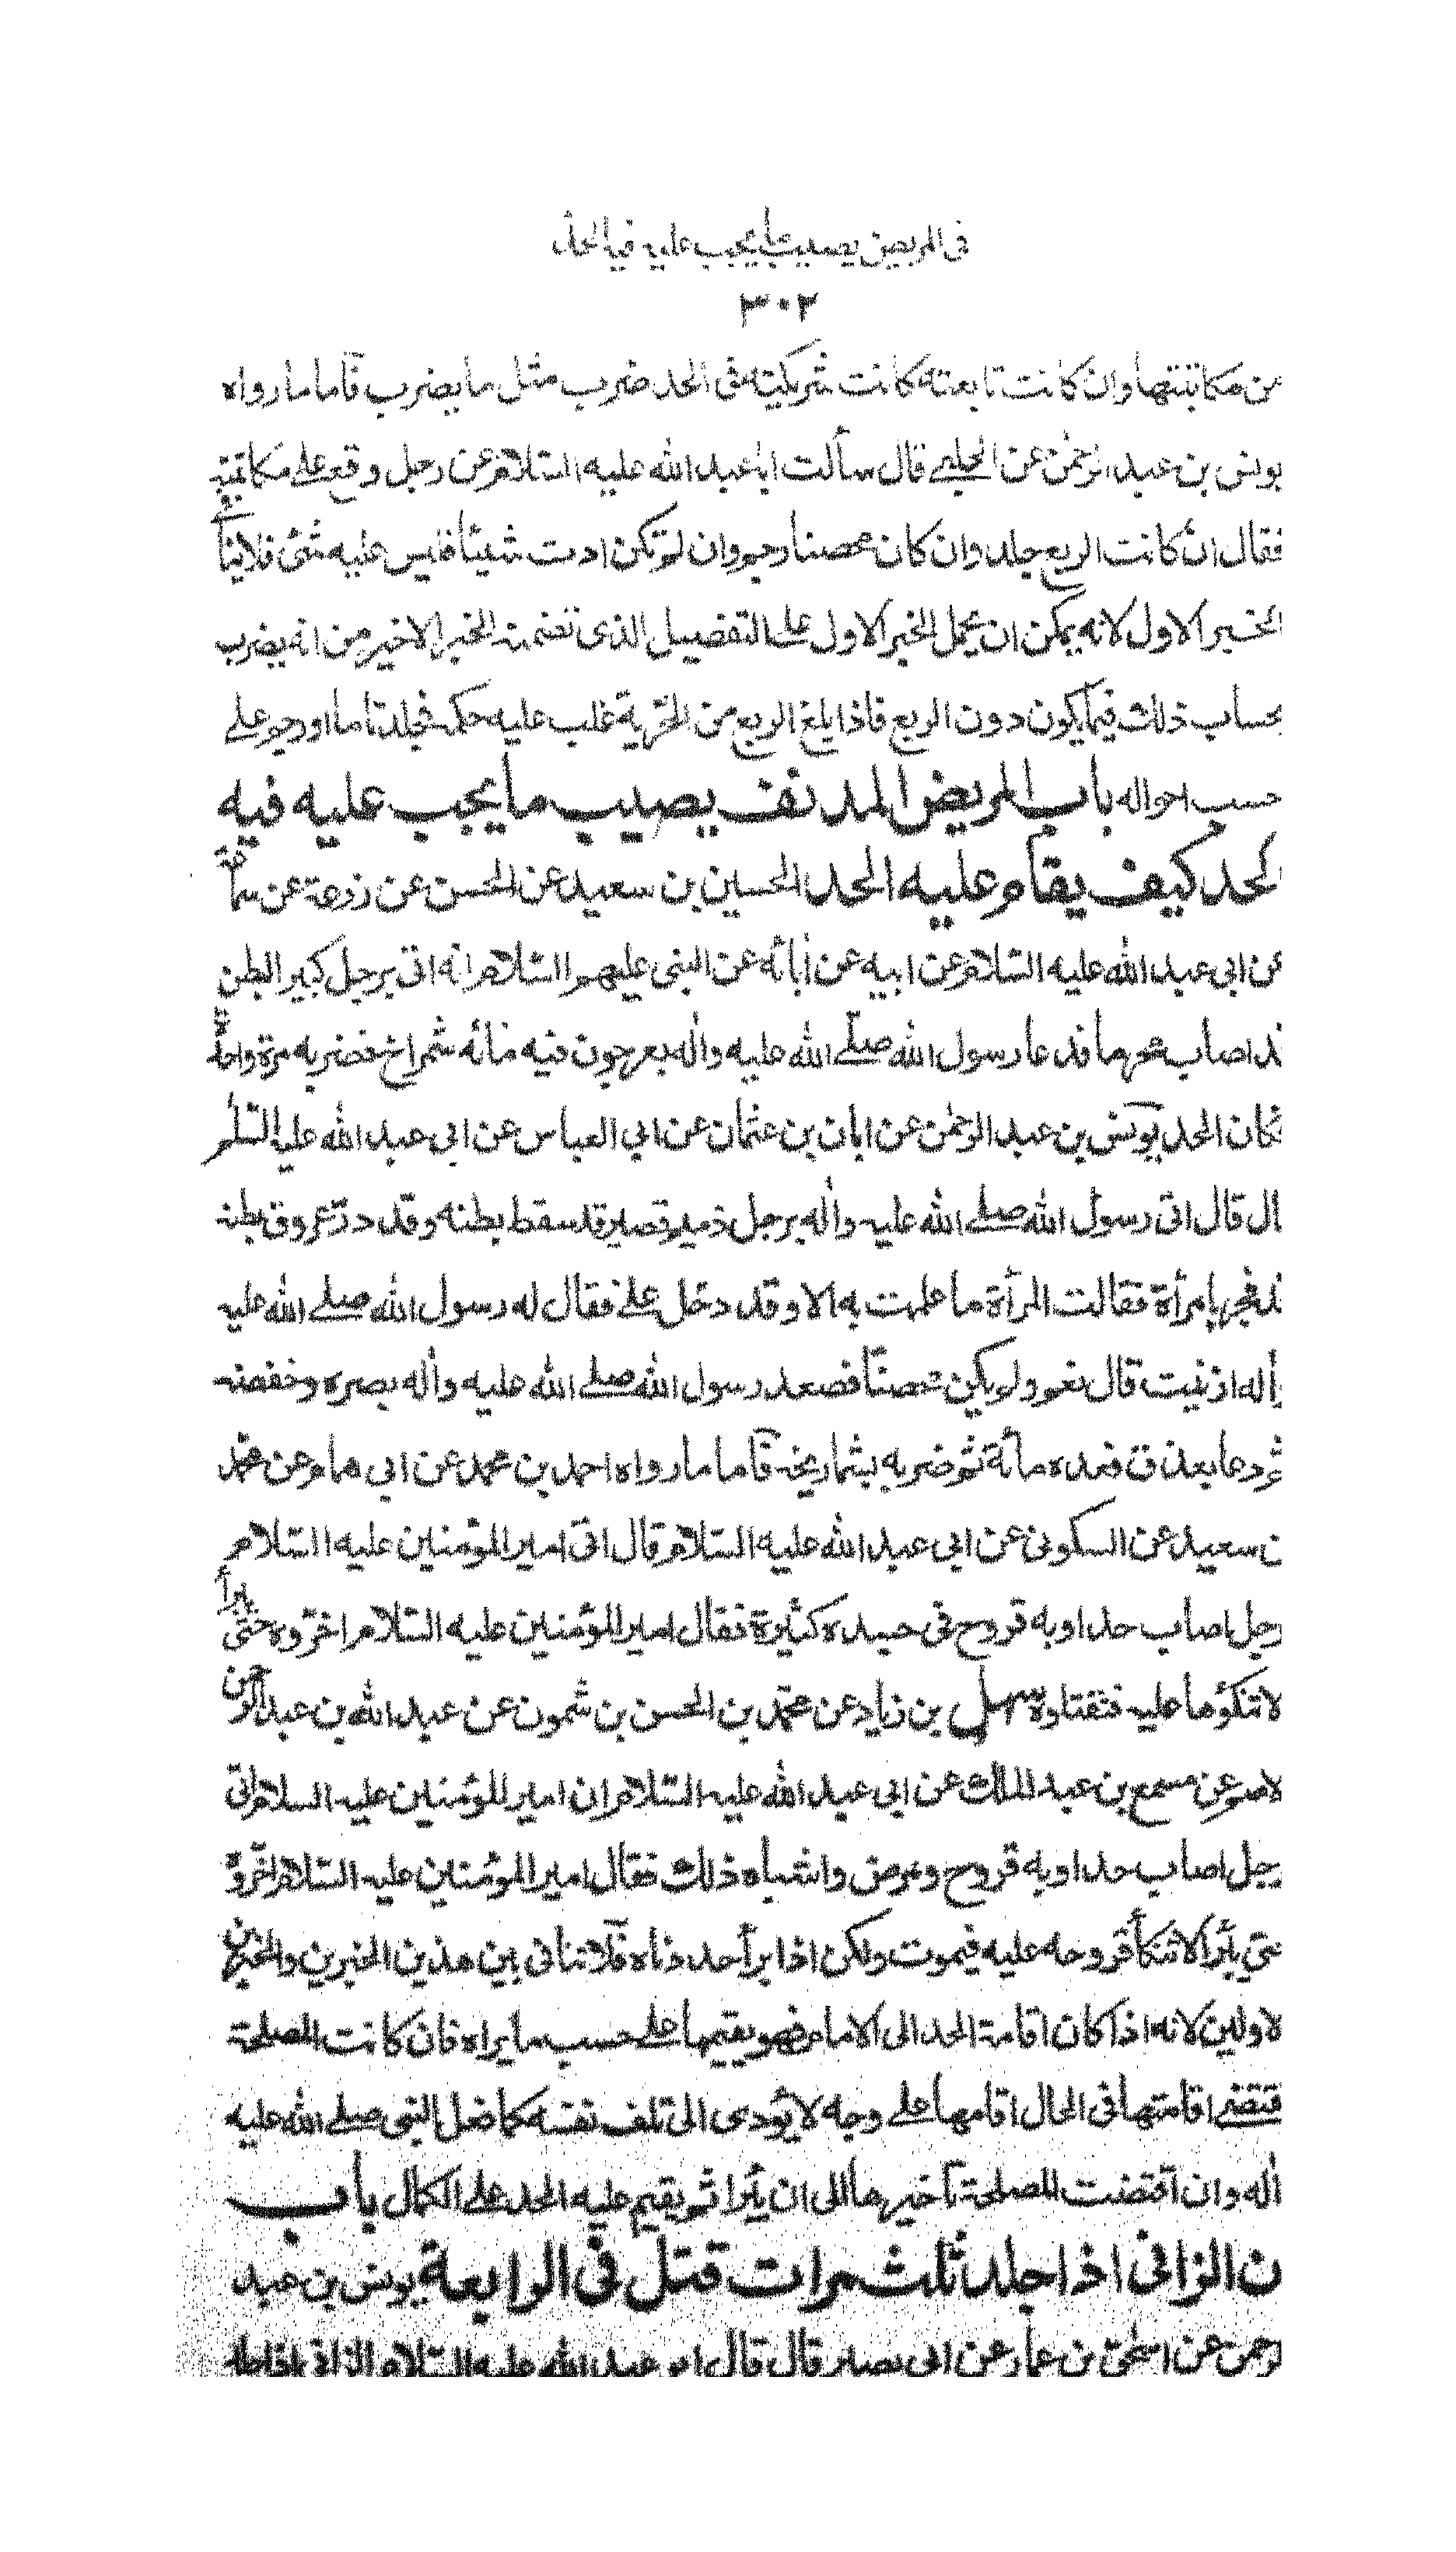 في المريض يصيب ما يجب عليه فيه الحد
٣٠٢
من مكاتبتها وان كانت تابعته كانت شريكته في الحد ضرب مثل ما يضرب فأما ما رواه
يونس بن عبد الرحمن عن الحلبي قال سألت ابا عبد الله عليه السلام عن رجل وقع على مكاتبته
فقال ان كانت ادت الربع جلد وان كان محصنا رجم وان لم تكن ادت شيئا فليس عليه شئ فلا ينافي
الخبر الاول لانه يمكن ان يحمل الخبر الاول على التفصيل الذي تضمنه الخبر الاخير من انه يضرب
بحساب ذلك فيما يكون دون الربع فاذا بلغ الربع من الحرية غلب عليه حكمه فجلد تاما او رجم على
حسب احواله باب المريض المدنف يصيب ما يجب عليه فيه
الحد كيف يقام عليه الحد الحسين بن سعيد عن الحسن عن زرعة عن سماعة
عن ابي عبد الله عليه السلام عن ابيه عن أبائه عن النبي عليهم السلام انه اتى برجل كبير البطن
قد اصاب محرما فدعا رسول الله صلى الله عليه واله بعرجون فيه مائه شمراخ فضربه مرة واحدة
فكان الحد يونس بن عبد الرحمن عن ابان بن عثمان عن ابي العباس عن ابي عبد الله عليه السلم
قال قال اتى رسول الله صلى الله عليه واله برجل ذميم قصير قد سقط بطنه وقد در عروق بطنه
قد فجر بإمرأة فقالت المرأة ما علمت به الا وقد دخل علي فقال له رسول الله صلى الله عليه
وأله ازنيت قال نعم ولم يكن محصنا فصعد رسول الله صلى الله عليه وأله بصره وخفضه
ثم دعا بعذق فعده مائة ثم ضربه بشماريخه فأما ما رواه احمد بن محمد عن ابي همام عن محمد
بن سعيد عن السكوني عن ابي عبد الله عليه السلام قال اتى امير المؤمنين عليه السلام
برجل اصاب حدا وبه قروح في جسده كثيرة فقال امير المؤمنين عليه السلام اخروه حتى يبرأ
لا تنكؤها عليه فتقتلوه سهل بن زياد عن محمد بن الحسن بن شمون عن عبد الله بن عبد الرحمن
الاصم عن مسمع بن عبد الملك عن ابي عبد الله عليه السلام ان امير المؤمنين عليه السلام اتى
برجل اصاب حدا وبه قروح ومرض واشباه ذلك فقال امير المؤمنين عليه السلام اخروه
حتى يبرأ لا تنكأ قروحه عليه فيموت ولكن اذا برأ حددناه فلا تنافى بين هذين الخبرين والخبرين
الاولين لانه اذا كان اقامة الحد الى الامام فهو يقيمها على حسب ما يراه فان كانت المصلحة
تقتضي اقامتها في الحال اقامها على وجه لا يؤدى الى تلف نفسه كما فعل النبي صلى الله عليه
وأله وان أقتضت المصلحة تأخيرها الى ان يبرأ ثم يقيم عليه الحد على الكمال باب
ان الزاني اذا جلد ثلث مرات قتل في الرابعة يونس بن عبد
الرحمن عن اسحق بن عمار عن ابي بصير قال قال ابو عبد الله عليه السلام الزاني اذا جلد